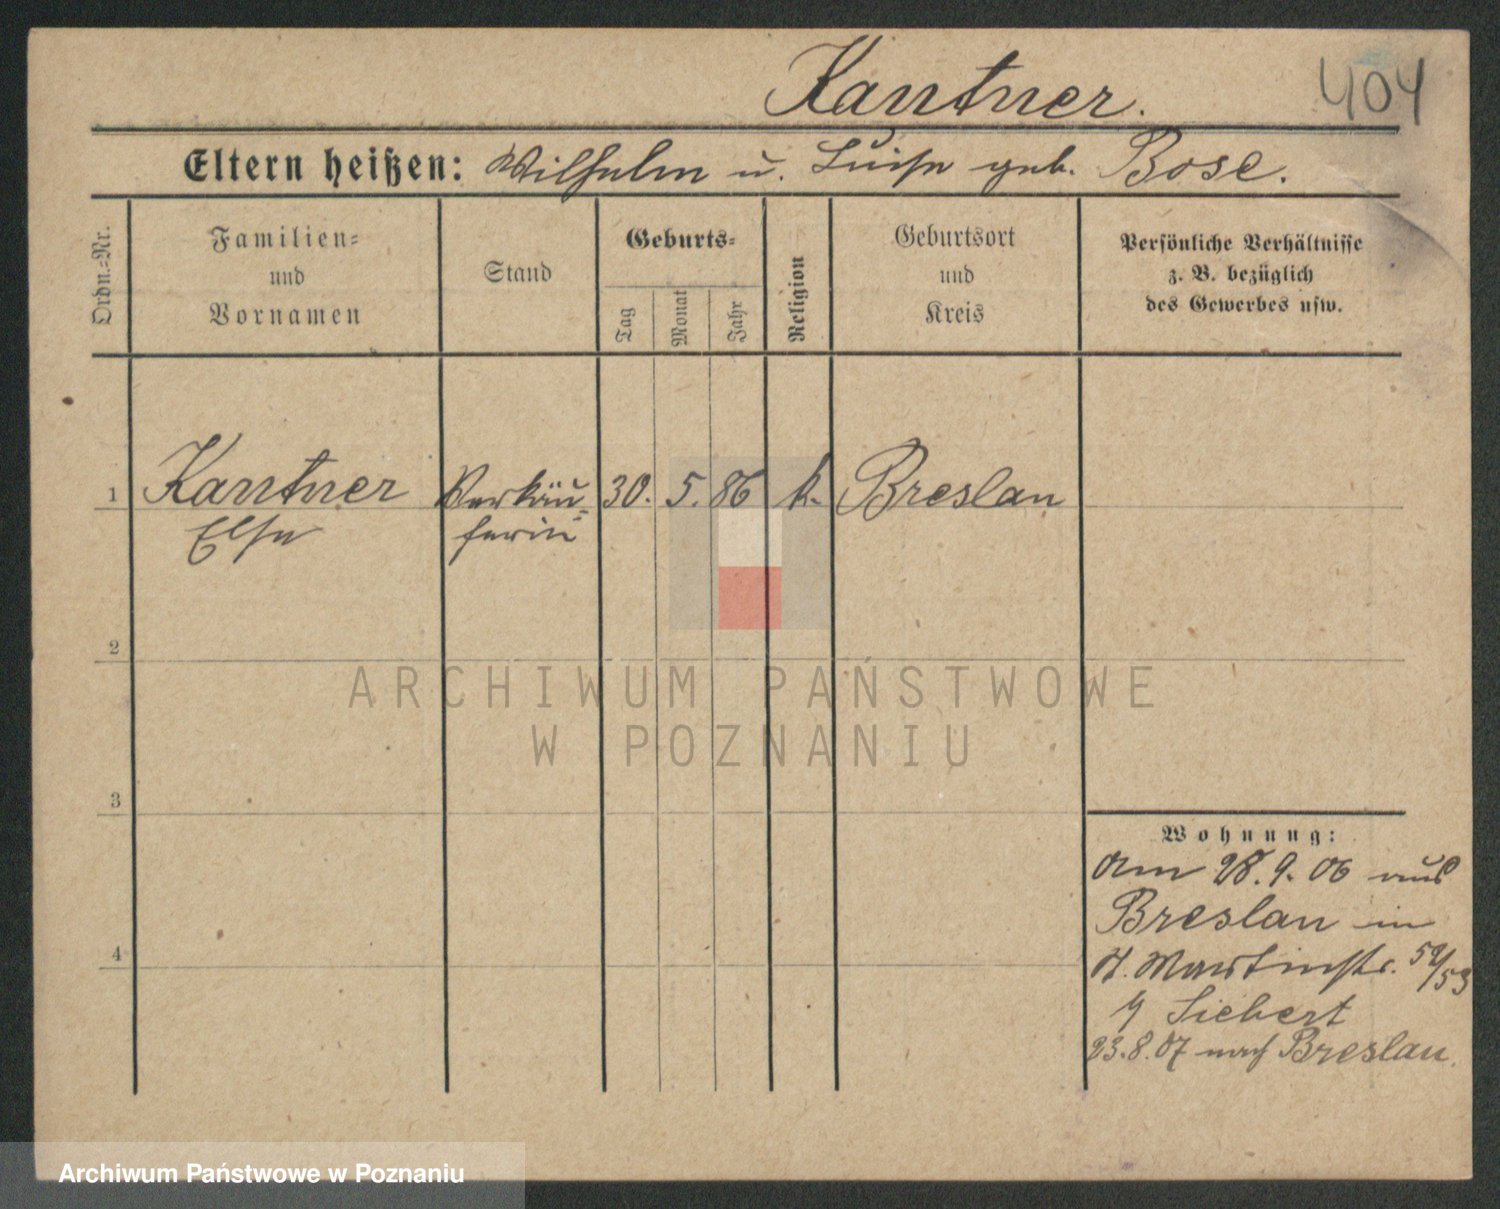 Kantner.
404
Eltern heißen: Wilhelm u. Luise geb. Bose.
Ordn.-Nr.
Familien-
und
Vornamen
Stand
Geburts-
Tag
Monat
Jahr
Religion
Geburtsort
und
Kreis
Persönliche Verhältnisse
z. B. bezüglich
des Gewerbes usw.
1 Kantner Verkäu- 30. 5. 86 k. Breslau
Else ferin
2
ARCHIWUM PAŃSTWOWE
W POZNANIU
3
Wohnung:
Am 28.9.06 aus
Breslau in
4
Martinstr. 52/53
Siebert
23.8.07 nach Breslau.
Archiwum Państwowe w Poznaniu